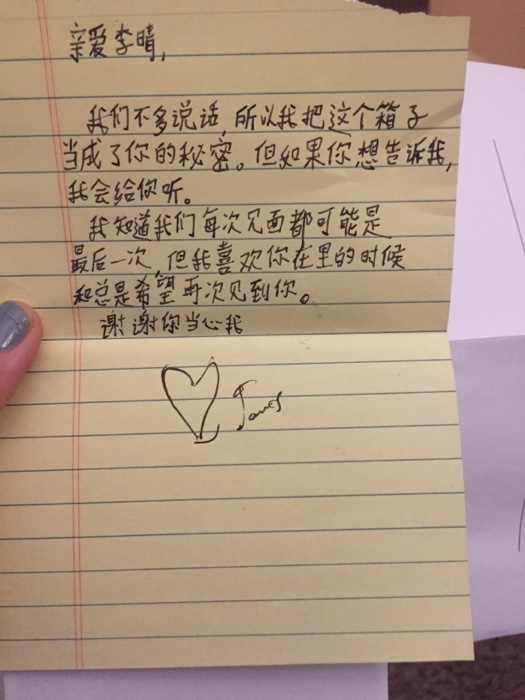 亲爱李晴,
我们不多说话,所以我把这个箱子
当成了你的秘密。但如果你想告诉我,
我会给你听。
我知道我们每次见面都可能是
最后一次,但我喜欢你在里的时候
和总是希望再次见到你。
谢谢你当心我
James